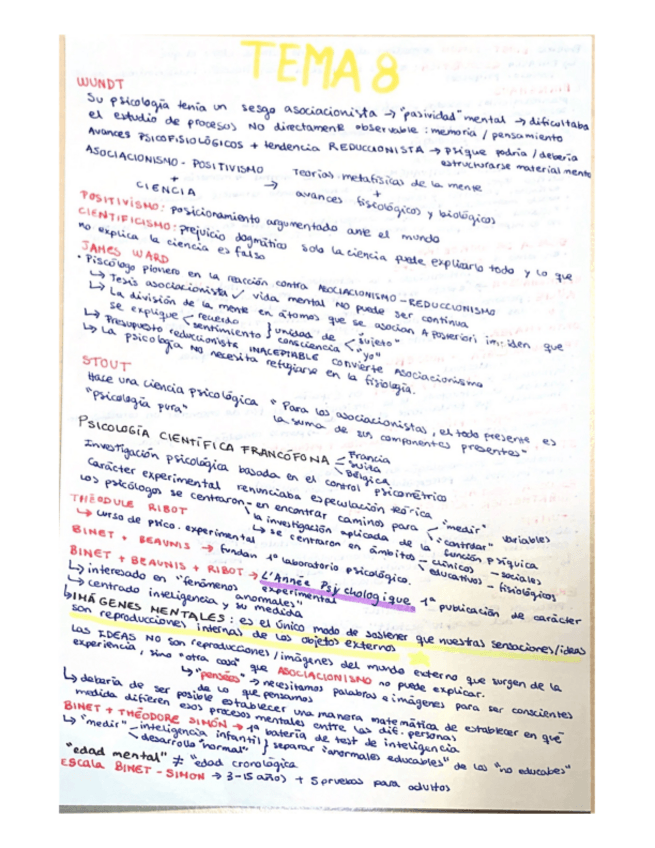 TEMA 8
WUNDT
Su psicología tenía un sesgo asociacionista → "pasividad" mental → dificultaba
el estudio de procesos NO directamente observable: memoria / pensamiento
Avances PSICOFISIOLÓGICOS + tendencia REDUCCIONISTA → psique podría / debería
estructurarse materialmente
ASOCIACIONISMO - POSITIVISMO + CIENCIA → Teorías metafísicas de la mente + avances fisiológicos y biológicos
POSITIVISMO: posicionamiento argumentado ante el mundo
CIENTIFICISMO: prejuicio dogmático solo la ciencia puede explicarlo todo y lo que
no explica la ciencia es falso
JAMES WARD
• Piscólogo pionero en la reacción contra ASOCIACIONISMO-REDUCCIONISMO
↳ Tesis asociacionista ✓ vida mental no puede ser continua
↳ La división de la mente en átomos que se asocian A posteriori impiden que
se explique recuerdo sentimiento } unidad de consciencia "sujeto" "yo"
↳ Presupuesto reduccionista INACEPTABLE convierte Asociacionismo
↳ La psicología NO necesita refugiarse en la fisiología.
STOUT
Hace una ciencia psicológica
"Psicología pura"
" Para los asociacionistas, el todo presente es
la suma de sus componentes presentes"
PSICOLOGÍA CIENTÍFICA FRANCÓFONA Francia Suiza Bélgica
Investigación psicológica basada en el control psicométrico
Carácter experimental renunciaba especulación teórica
Los psicólogos se centraron - en encontrar caminos para "medir" "controlar" variables
la investigación aplicada de la función psíquica
THÉODULE RIBOT
↳ se centraron en ámbitos clínicos - sociales educativos - fisiológicos
↳ curso de psico. experimental
BINET + BEAUNIS → fundan 1º laboratorio psicológico.
BINET + BEAUNIS + RIBOT → L'Année Psychologique 1ª publicación de carácter
experimental
↳ interesado en "fenómenos anormales"
↳ centrado inteligencia y su medida
↳ IMÁGENES MENTALES: es el único modo de sostener que nuestras sensaciones/ideas
son reproducciones internas de los objetos externos
Las IDEAS NO son reproducciones / imágenes del mundo externo que surgen de la
experiencia, sino "otra cosa" que ASOCIACIONISMO no puede explicar.
→ necesitamos palabras e imágenes para ser conscientes
de lo que pensamos
↳ debería de ser posible establecer una manera matemática de establecer en qué
medida difieren esos procesos mentales entre las dif. personas
BINET + THÉODORE SIMÓN → 1ª batería de test de inteligencia
↳ "medir" inteligencia infantil desarrollo "normal" } separar "anormales educables" de los "no educabes"
"edad mental" ≠ "edad cronológica
ESCALA BINET-SIMON → 3-15 años + 5 pruebas para adultos